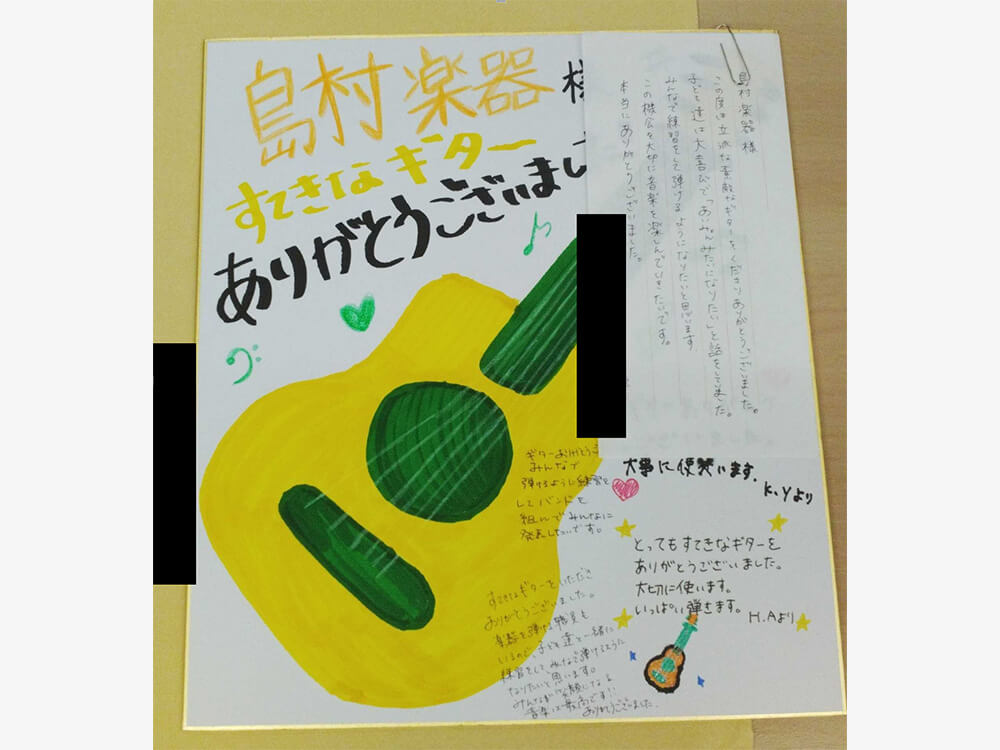 島村楽器様
すてきなギター
ありがとうございまし
島村楽器様
この度は立派な素敵なギターをくださりありがとうございました。
子ども達は大喜びで「あいみょんみたいになりたい」と話をしていました。
みんなで練習をして弾けるようになりたいと思います
この機会を大切に音楽を楽しんでいきたいです。
本当にありがとうございました。
ギターありがとうご
みんなで
弾けるように練習を
してバンドを
組んでみんなに
発表したいです。
大事に使います。
K.Yより
とってもすてきなギターを
ありがとうございました。
大切に使います。
いっぱい弾きます。
H.Aより
すてきなギターをいただき
ありがとうございました。
楽器を弾けた職員も
いるので、子ども達と一緒に
練習をしてみんなで弾けるように
なりたいと思います。
みんなが笑顔になる
音楽は最高です!!
ありがとうございました。